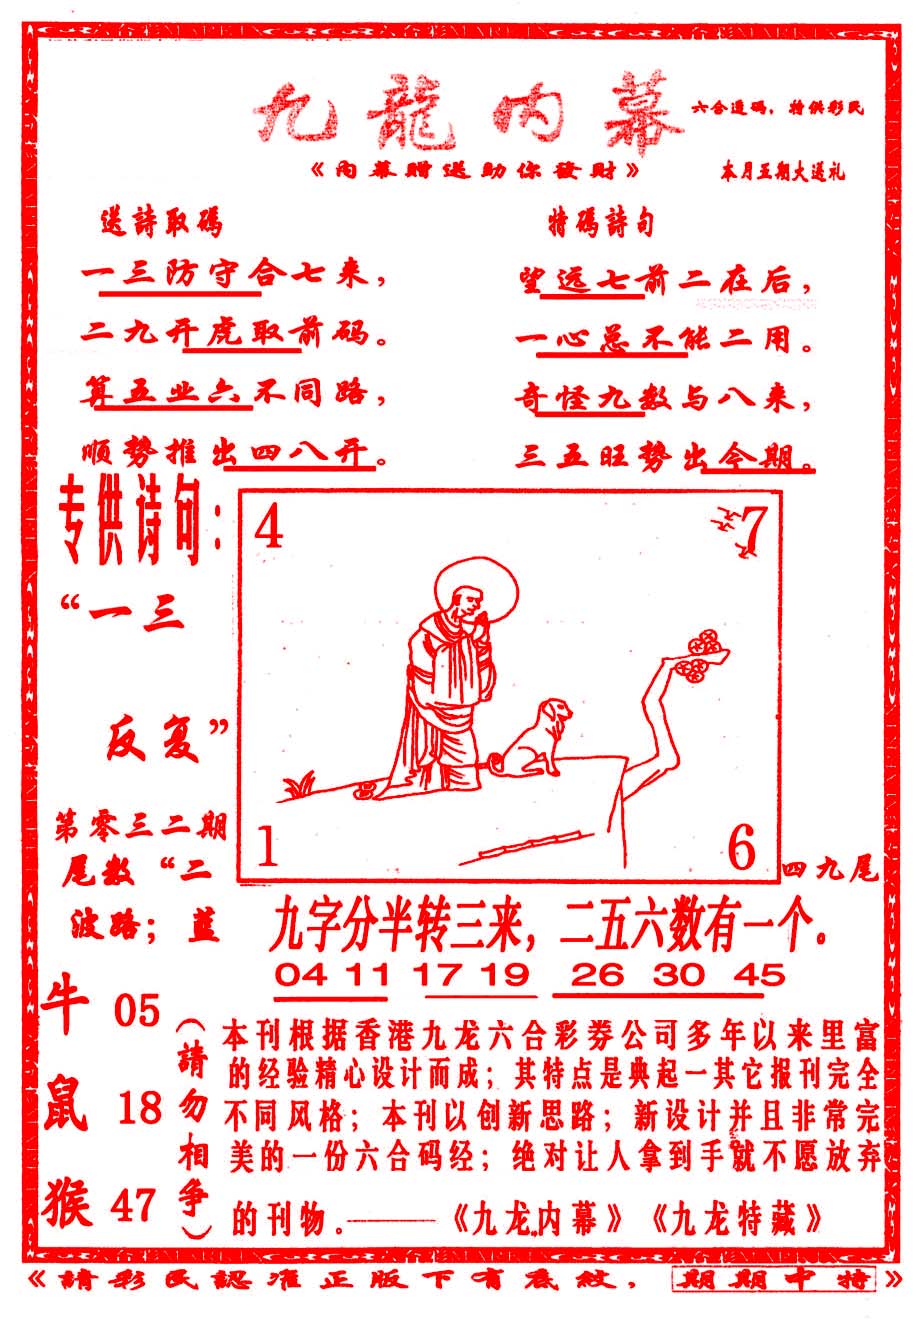 九龍内幕
六合透码，特供彩民
《内幕贈送助你發財》
本月五期大送礼
送詩取碼
一三防守合七来，
二九开虎取前码。
算五业六不同路，
顺势推出四八开。
特碼詩句
望远七前二在后，
一心总不能二用。
奇怪九数与八来，
三五旺势出今期。
专供诗句：
“一三
反复”
第零三二期
尾数“二
四九尾
波路；蓝
4
7
1
6
九字分半转三来，二五六数有一个。
04 11 17 19 26 30 45
牛 05
鼠 18
猴 47
（請勿相争）
本刊根据香港九龙六合彩券公司多年以来里富
的经验精心设计而成；其特点是典起一其它报刊完全
不同风格；本刊以创新思路；新设计并且非常完
美的一份六合码经；绝对让人拿到手就不愿放弃
的刊物。——《九龙内幕》《九龙特藏》
《請彩民認准正版下有底紋，期期中特》